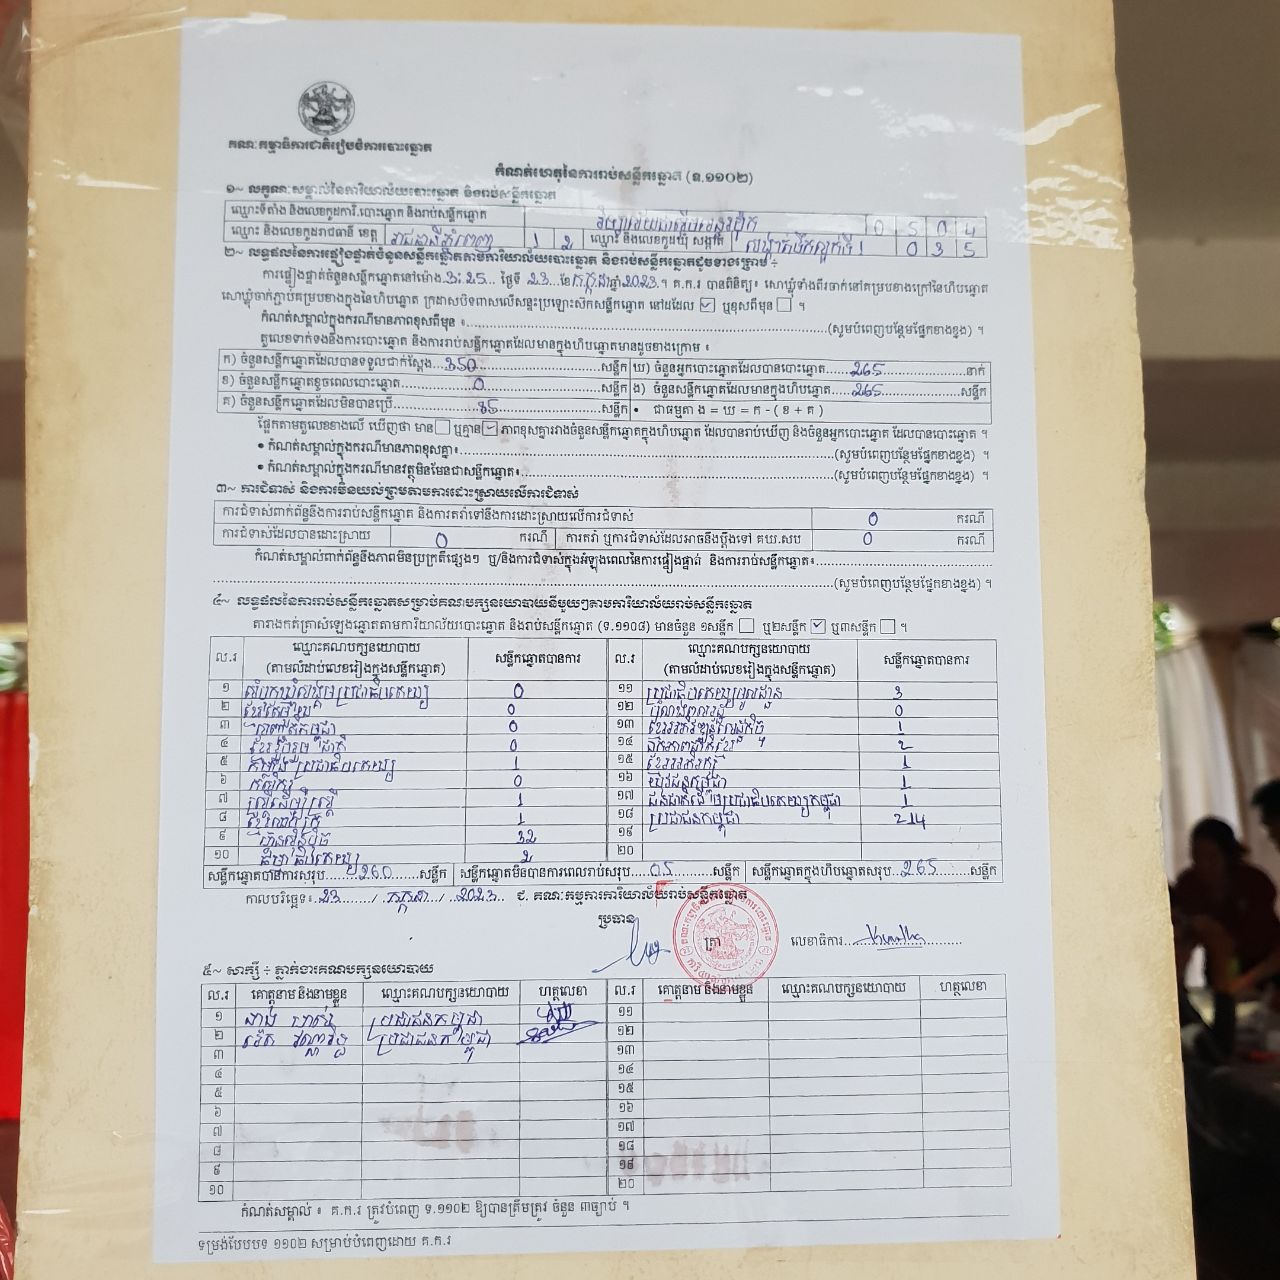 គណៈកម្មាធិការជាតិរៀបចំការបោះឆ្នោត
កំណត់ហេតុនៃការរាប់សន្លឹកឆ្នោត (ទ.១១០២)
១~ លក្ខណៈសម្គាល់នៃការិយាល័យបោះឆ្នោត និងរាប់សន្លឹកឆ្នោត
ឈ្មោះទីតាំង និងលេខកូដការិ.បោះឆ្នោត និងរាប់សន្លឹកឆ្នោត 0 5 0 4
ឈ្មោះ និងលេខកូដរាជធានី ខេត្ត រាជធានីភ្នំពេញ 1 2 ឈ្មោះ និងលេខកូដឃុំ សង្កាត់ 0 3 5
២~ លទ្ធផលនៃការផ្ទៀងផ្ទាត់ចំនួនសន្លឹកឆ្នោតតាមការិយាល័យបោះឆ្នោត និងរាប់សន្លឹកឆ្នោតដូចខាងក្រោម ÷
ការផ្ទៀងផ្ទាត់ចំនួនសន្លឹកឆ្នោតនៅម៉ោង 3:25 ថ្ងៃទី 23 ខែ កក្កដា ឆ្នាំ 2023 ។ គ.ក.រ បានពិនិត្យ៖ សោឃ្លុំទាំងពីរចាក់នៅគម្របខាងក្រៅនៃហិបឆ្នោត
សោឃ្លុំចាក់ភ្ជាប់គម្របខាងក្នុងនៃហិបឆ្នោត ក្រដាសបិទពាសលើសន្ទះប្រឡោះស៊កសន្លឹកឆ្នោត នៅដដែល ☑ ឬខុសពីមុន ☐ ។
កំណត់សម្គាល់ក្នុងករណីមានភាពខុសពីមុន ៖.....(សូមបំពេញបន្ថែមផ្នែកខាងខ្នង) ។
តួលេខទាក់ទងនឹងការបោះឆ្នោត និងការរាប់សន្លឹកឆ្នោតដែលមានក្នុងហិបឆ្នោតមានដូចខាងក្រោម ៖
ក) ចំនួនសន្លឹកឆ្នោតដែលបានទទួលជាក់ស្តែង...350...សន្លឹក ឃ) ចំនួនអ្នកបោះឆ្នោតដែលបានបោះឆ្នោត...265...នាក់
ខ) ចំនួនសន្លឹកឆ្នោតខូចពេលបោះឆ្នោត...0...សន្លឹក ង) ចំនួនសន្លឹកឆ្នោតដែលមានក្នុងហិបឆ្នោត...265...សន្លឹក
គ) ចំនួនសន្លឹកឆ្នោតដែលមិនបានប្រើ...85...សន្លឹក • ជាធម្មតា ង = ឃ = ក - ( ខ + គ )
ផ្អែកតាមតួលេខខាងលើ ឃើញថា មាន ☐ ឬគ្មាន ☑ ភាពខុសគ្នារវាងចំនួនសន្លឹកឆ្នោតក្នុងហិបឆ្នោត ដែលបានរាប់ឃើញ និងចំនួនអ្នកបោះឆ្នោត ដែលបានបោះឆ្នោត ។
• កំណត់សម្គាល់ក្នុងករណីមានភាពខុសគ្នា៖.....(សូមបំពេញបន្ថែមផ្នែកខាងខ្នង) ។
• កំណត់សម្គាល់ក្នុងករណីមានវត្ថុមិនមែនជាសន្លឹកឆ្នោត៖.....(សូមបំពេញបន្ថែមផ្នែកខាងខ្នង) ។
៣~ ការជំទាស់ និងការមិនយល់ព្រមតាមការដោះស្រាយលើការជំទាស់
ការជំទាស់ពាក់ព័ន្ធនឹងការរាប់សន្លឹកឆ្នោត និងការតវ៉ាទៅនឹងការដោះស្រាយលើការជំទាស់ 0 ករណី
ការជំទាស់ដែលបានដោះស្រាយ 0 ករណី ការតវ៉ា ឬការជំទាស់ដែលអាចនឹងប្តឹងទៅ គឃ.សប 0 ករណី
កំណត់សម្គាល់ពាក់ព័ន្ធនឹងភាពមិនប្រក្រតីផ្សេងៗ ឬ/និងការជំទាស់ក្នុងអំឡុងពេលនៃការផ្ទៀងផ្ទាត់ និងការរាប់សន្លឹកឆ្នោត៖.....
.....(សូមបំពេញបន្ថែមផ្នែកខាងខ្នង) ។
៤~ លទ្ធផលនៃការរាប់សន្លឹកឆ្នោតសម្រាប់គណបក្សនយោបាយនីមួយៗតាមការិយាល័យរាប់សន្លឹកឆ្នោត
តារាងកត់ត្រាសំឡេងឆ្នោតតាមការិយាល័យបោះឆ្នោត និងរាប់សន្លឹកឆ្នោត (ទ.១១០៨) មានចំនួន ១សន្លឹក ☐ ឬ២សន្លឹក ☑ ឬ៣សន្លឹក ☐ ។
ល.រ ឈ្មោះគណបក្សនយោបាយ (តាមលំដាប់លេខរៀងក្នុងសន្លឹកឆ្នោត) សន្លឹកឆ្នោតបានការ ល.រ ឈ្មោះគណបក្សនយោបាយ (តាមលំដាប់លេខរៀងក្នុងសន្លឹកឆ្នោត) សន្លឹកឆ្នោតបានការ
១ សំបុកឃ្មុំសង្គមប្រជាធិបតេយ្យ 0 ១១ ប្រជាធិបតេយ្យមូលដ្ឋាន 3
២ 0 ១២ 0
៣ 0 ១៣ 1
៤ 0 ១៤ 2
៥ ប្រជាធិបតេយ្យ 1 ១៥ 1
៦ កសិករ 0 ១៦ យុវជនកម្ពុជា 1
៧ ស្ត្រីដើម្បីស្ត្រី 1 ១៧ 1
៨ 1 ១៨ ប្រជាជនកម្ពុជា 214
៩ ហ៊្វុនស៊ិនប៉ិច 32 ១៩
១០ ធម្មាធិបតេយ្យ 2 ២០
សន្លឹកឆ្នោតបានការសរុប...260...សន្លឹក សន្លឹកឆ្នោតមិនបានការពេលរាប់សរុប...05...សន្លឹក សន្លឹកឆ្នោតក្នុងហិបឆ្នោតសរុប...265...សន្លឹក
កាលបរិច្ឆេទ៖ 23 / កក្កដា / 2023 ជ. គណៈកម្មការការិយាល័យរាប់សន្លឹកឆ្នោត
ប្រធាន
ត្រា លេខាធិការ
៥~ សាក្សី ÷ ភ្នាក់ងារគណបក្សនយោបាយ
ល.រ គោត្តនាម និងនាមខ្លួន ឈ្មោះគណបក្សនយោបាយ ហត្ថលេខា ល.រ គោត្តនាម និងនាមខ្លួន ឈ្មោះគណបក្សនយោបាយ ហត្ថលេខា
១ ប្រជាជនកម្ពុជា ១១
២ ប្រជាជនកម្ពុជា ១២
៣ ១៣
៤ ១៤
៥ ១៥
៦ ១៦
៧ ១៧
៨ ១៨
៩ ១៩
១០ ២០
កំណត់សម្គាល់ ៖ គ.ក.រ ត្រូវបំពេញ ទ.១១០២ ឱ្យបានត្រឹមត្រូវ ចំនួន ៣ច្បាប់ ។
ទម្រង់បែបបទ ១១០២ សម្រាប់បំពេញដោយ គ.ក.រ